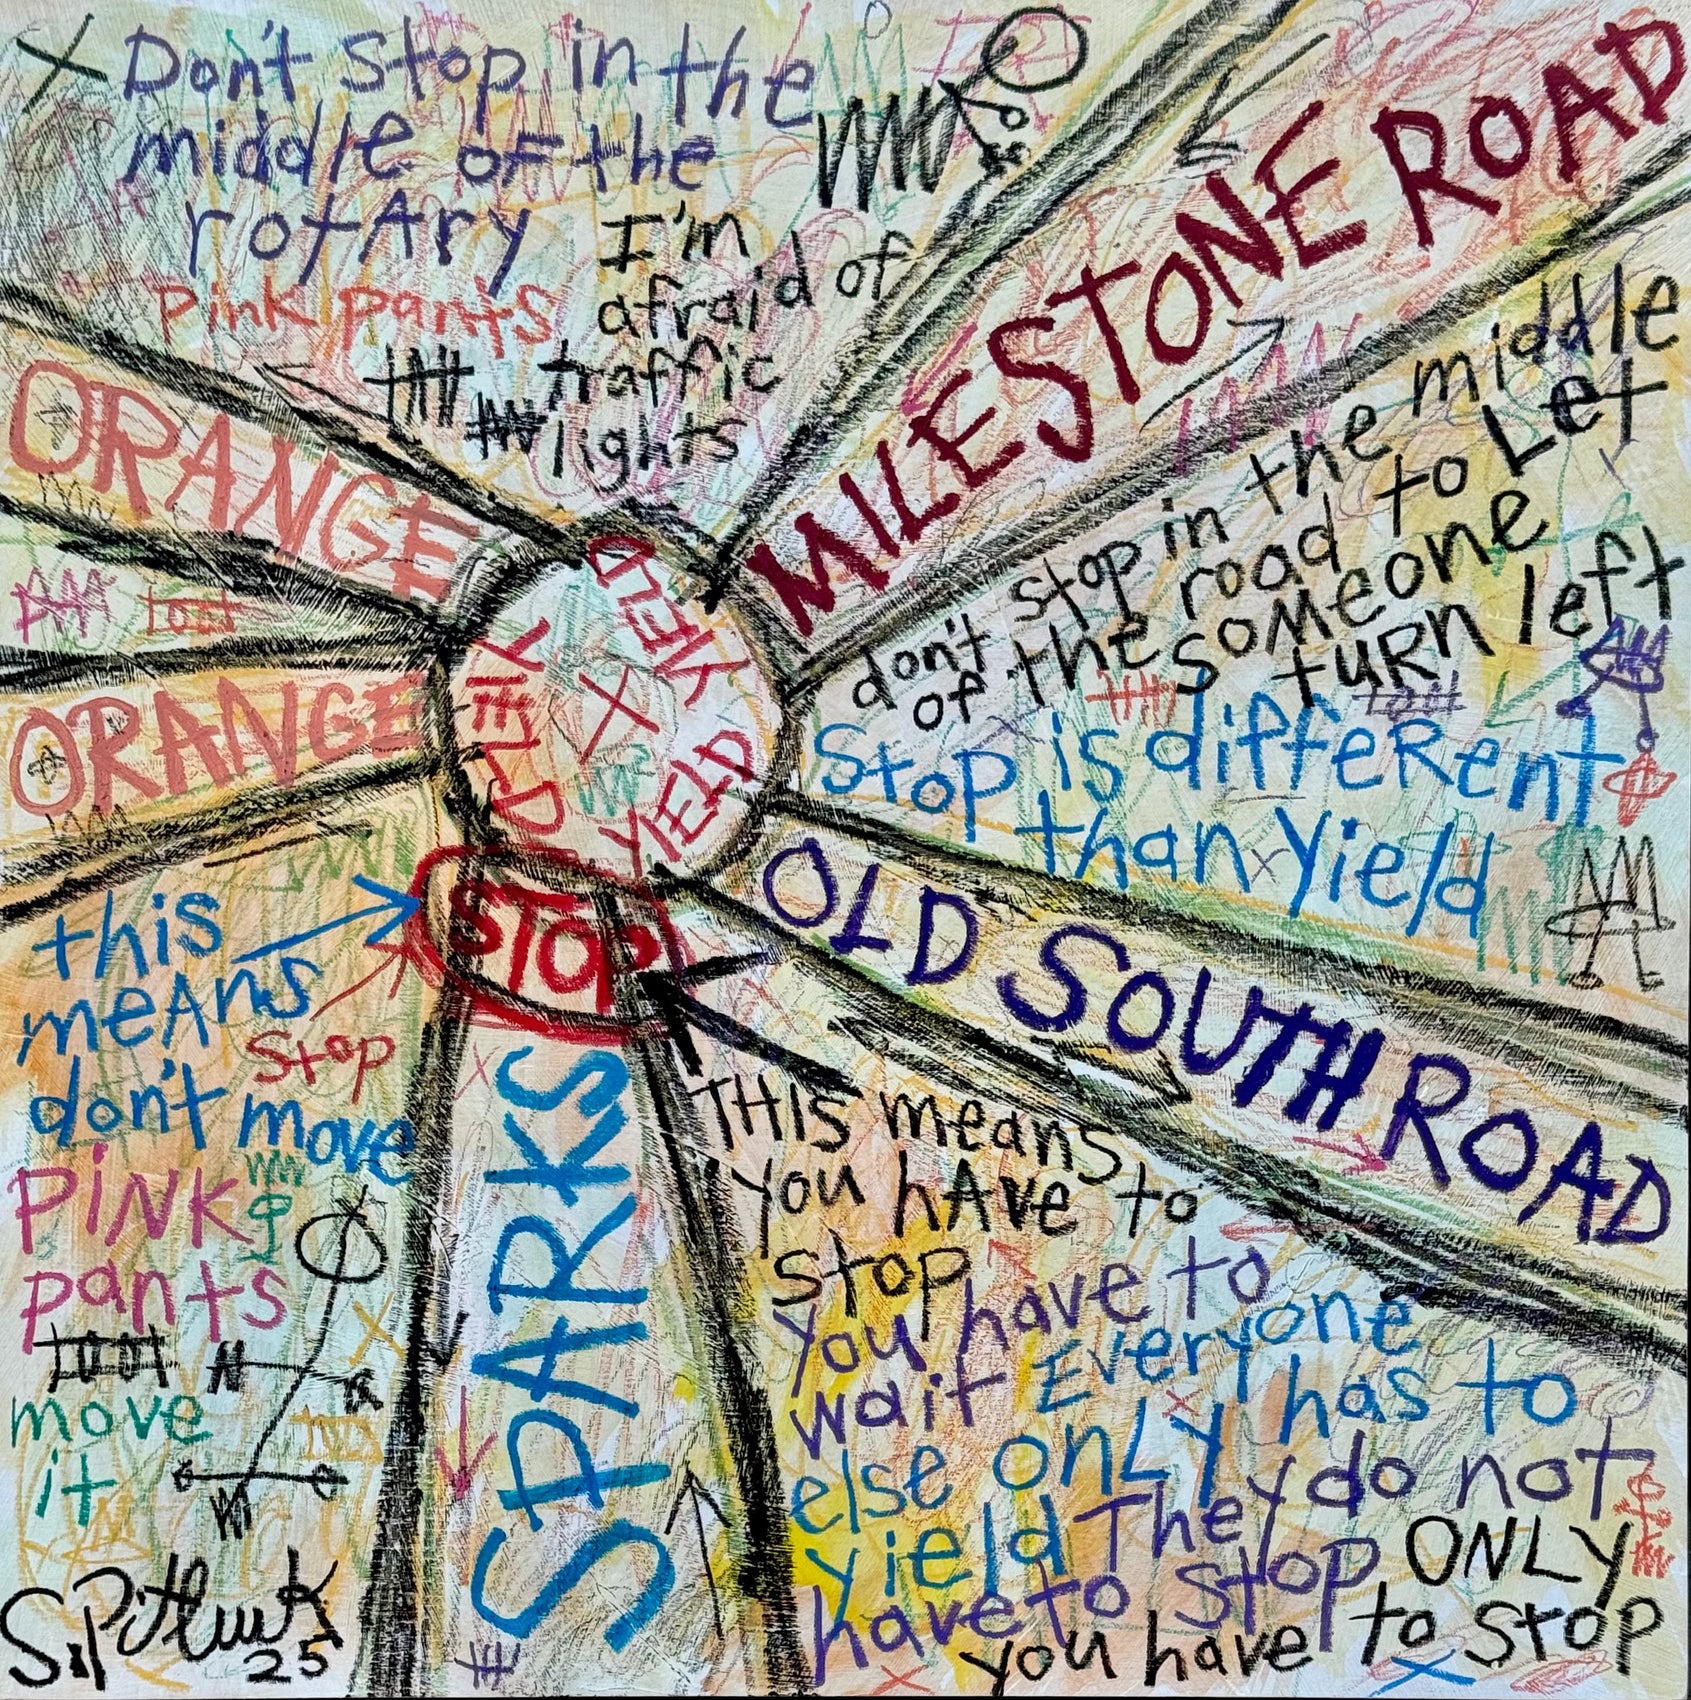 Don't Stop in the
middle of the
rotAry
Pink pants
I'm
afraid of
traffic
lights
MILESTONE ROAD
ORANGE
ORANGE
lost
YIELD
YIELD
YIELD
don't stop in the middle
of the road to Let
someone
turn left
Stop is different
than yield
OLD SOUTH ROAD
STOP
this
meAns
don't move
Stop
SPARKS
PiNK
pants
move
it
THis means
you hAve to
stop
you have to
wait Everyone
else only has to
yield They do not
have to stop ONLY
you have to stop
S.Pitluck
25